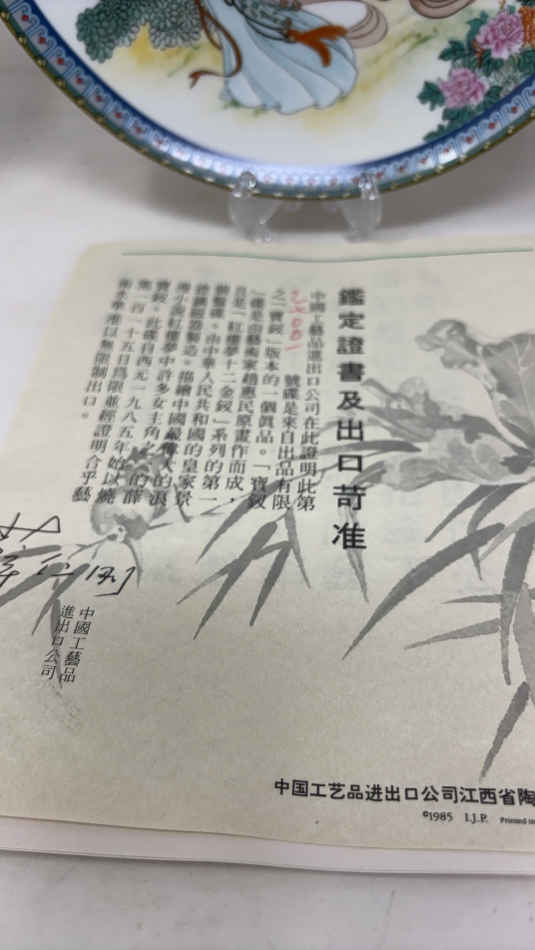 鑑定證書及出口苛准
中國工藝品進出口公司在此證明此第
號碟是來自出品有限
之「寶釵」版本的一個真品。「寶釵
」碟是由藝術家趙惠民原畫作而成，
且是「紅樓夢十二金釵」系列的第一
中華人民共和國的皇家景
描繪中國最偉大的浪
小說紅樓夢中許多女主角之一的薛
寶釵。此碟自西元一九八五年始以燒
集一百一十五日爲限並經證明合乎藝
術水準准以無限制出口。
中國工藝品
進出口公司
中国工艺品进出口公司江西省陶
©1985 I.J.P. Printed in